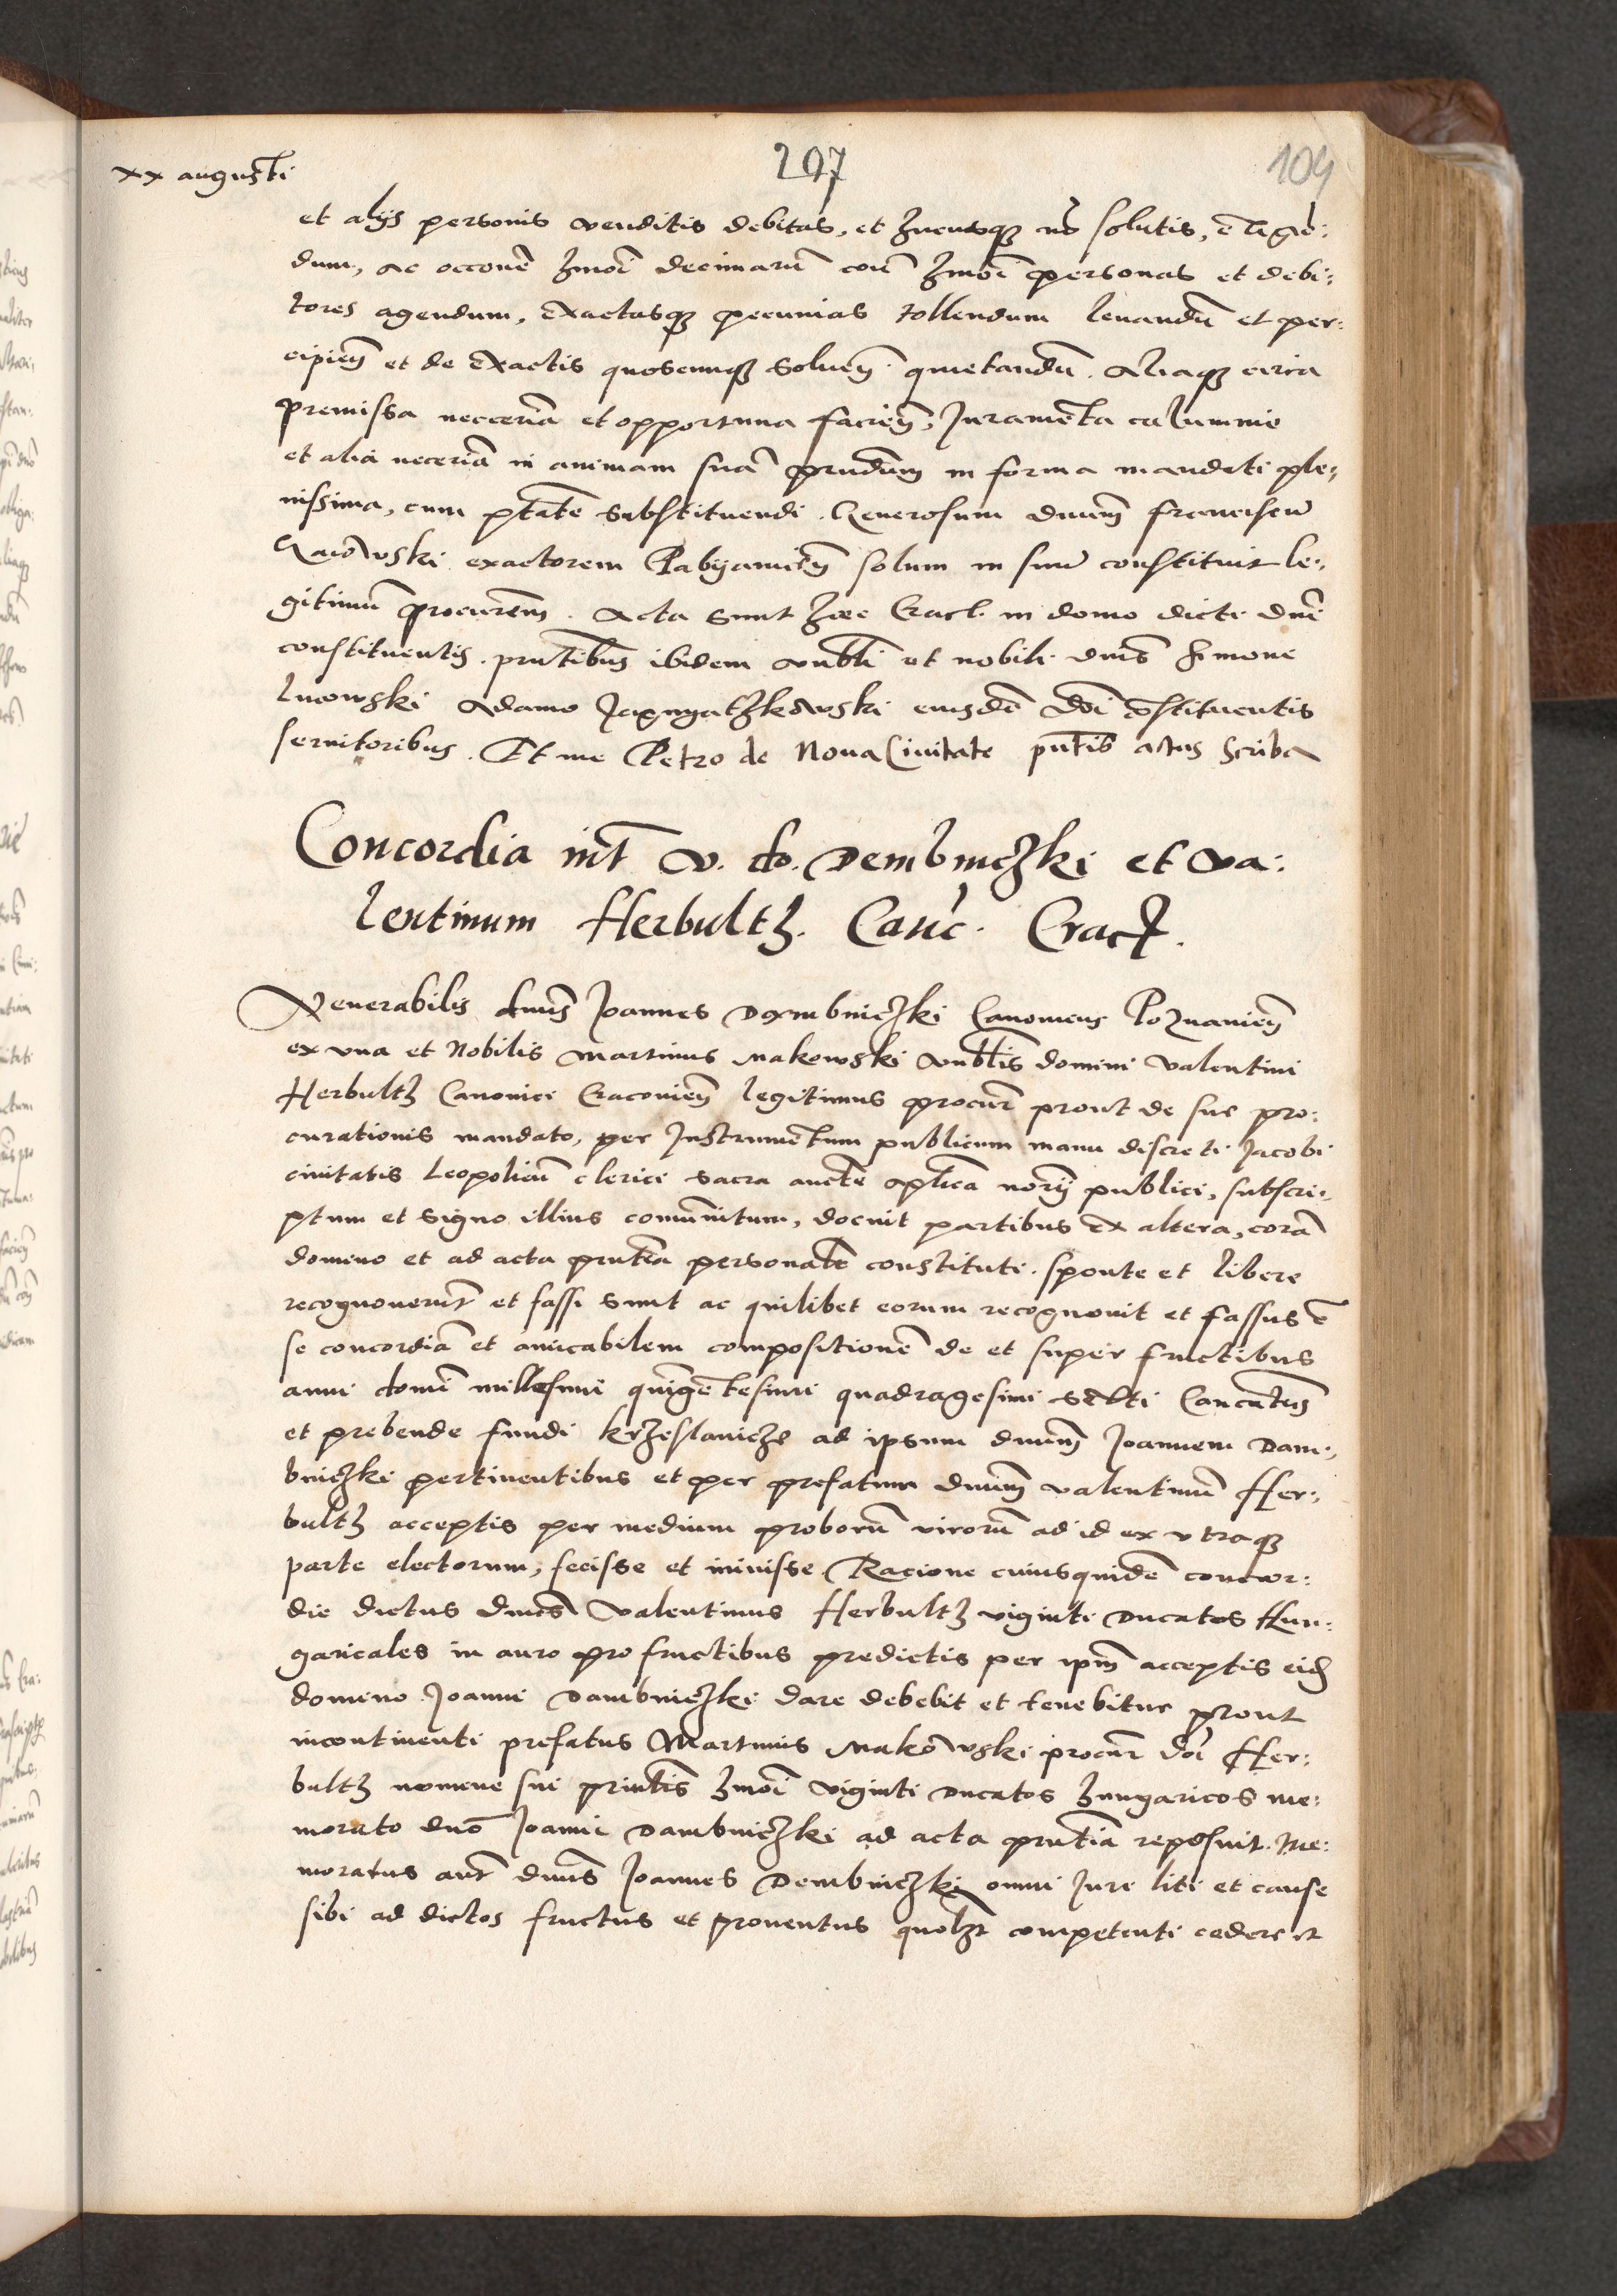 xx augusti
207
104
et alijs personis venditis debitas, et hucusq3 nō solutis, exigen:
dum, ac occōnē hmōi decimarū cōn̄ hmōi personas et debi:
tores agendum, exactasq3 pecunias tollendum levandū et per:
cipien̄ et de exactis quoscunq3 soluen̄ quietandū. Aliaq3 circa
premissa neccēria et opportuna facien̄, Juramēta calumnie
et alia necēria in animam suā prn̄dum in forma mandati ple:
nissima, cum ptāte substituendi. Generosum dnūm franciscū
exactorem Pabyanicēn̄ solum in sinn̄ constituit le:
gitimū procurēm. Acta sunt hec Crac. in domo dicti dnī
constituentis. prntibus ibidem vnbli et nobili dnīs Simone
lucowski Adamo eiusdē dnī cōstituentis
seruitoribus. Et me Petro de Noua Ciuitate pn̄tis actus Scriba
Concordia int̄ v. do. Dembniczki et Va:
lentinum Herbultz. Canc̄. Crac.
Venerabilis dnūs Joannes Dembniczki Canonicus Poznanien̄
ex vna et Nobilis Martinus Makowski vnblis domini Valentini
Herbultz Canonici Cracovien̄ legitimus procur̄ prout de sue pro:
curationis mandato, per Instrumentum publicum manu discreti Jacobi
ciuitatis Leopolien̄ clerici sacra aucte aplica norij publici, subscri:
ptum et signo illius comunitum, docuit partibus ex altera, corā
domino et ad acta prntia personalr̄ constituti. sponte et libere
recognouerūt et fassi sunt ac quilibet eorum recognouit et fassus ē
se concordiā et amicabilem compositionē de et super fructibus
anni domī millesimi quīgētesimi quadragesimi sexti Cancatus
et prebende fundi krzeslauicze ad ipsum dnūm Joannem Dam:
bniczki pertinentibus et per prefatum dnūm Valentinū Her:
bultz acceptis per medium proborū virorū ad id ex vtraq3
parte electorum, fecisse et inivisse Racione cuiusquidē concor:
die dictus dnūs Valentinus Herbultz viginti Ducatos Hun:
garicales in auro pro fructibus predictis per ipm̄ acceptis eid
domino Joanni Dambniczki dare debebit et tenebitur prout
incontinenti prefatus Martinus Makowski procur̄ dnī Her:
bultz nomine sui prīntis hmōi viginti Ducatos hungaricos me:
morato dnō Joanni Dambniczki ad acta prntia reposuit. Me:
moratus aut̄ dnūs Joannes Dembniczki omni Juri liti et cause
sibi ad dictos fructus et prouentus quolzt̄ competenti cedere et